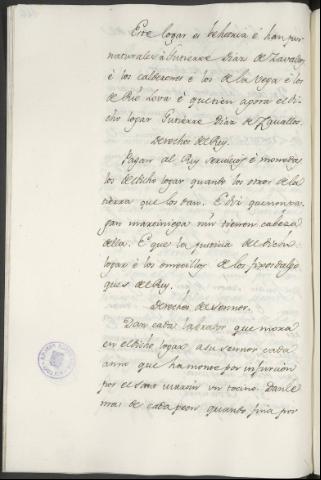 Este logar es behetria è han por
naturales à Gutierre Diaz de Zavallos,
è los calderones è los de la vega è los
de Rio Lova è quetien agora el di
cho logar Gutierre Diaz de Zavallos.
Derechos del Rey.
Pagan al Rey servicios è monedas
los de dicho logar quanto los otros de la
tierra que los dan. E diz que non pa
gan marciniega nin tienen cabeza
della. E que la justicia del dicho
logar è los omecillos de los fijosdalgo
que es del Rey.
Derechos del sennor.
Dan cada labrador que mora
en el dicho logar a su sennor cada
anno que ha monoc por infurcion
por el sant martin un tocino. Danle
mas de cada peon quanto fina por